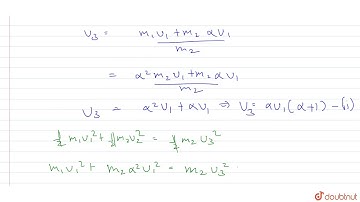 U₃ = m₁υ₁ + m₂ αυ₁ / m₂
= α² m₂ υ₁ + m₂ αυ₁ / m₂
U₃ = α² υ₁ + αυ₁ ⇒ U₃ = αυ₁ (α+1) – (i)
½ m₁υ₁² + ½ m₂υ₂² = ½ m₂ υ₃²
m₁υ₁² + m₂ α² υ₁² = m₂ υ₃²
doubtnut